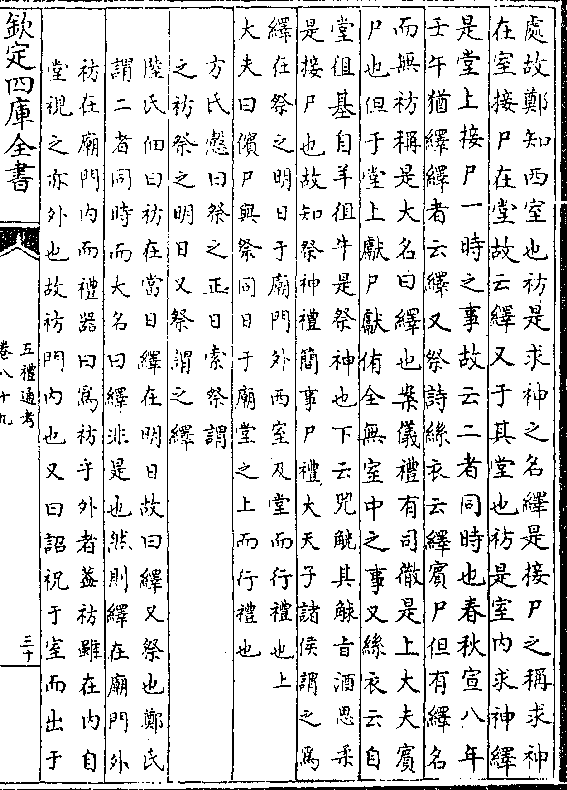 處故鄭知西室也祊是求神之名繹是接尸之稱求神
在室接尸在堂故云繹又于其堂也祊是室内求神繹
是堂上接尸一時之事故云二者同時也春秋宣八年
壬午猶繹繹者云繹又祭詩絲衣云繹賓尸但有繹名
而無祊稱是大名曰繹也案儀禮有司徹是上大夫賓
尸也但于堂上獻尸獻侑全無室中之事又絲衣云自
堂徂基自羊徂牛是祭神也下云兕觥其觩旨酒思柔
是接尸也故知祭神禮簡事尸禮大天子諸侯謂之為
繹在祭之明日于廟門外西室及堂而行禮也上
大夫曰儐尸與祭同日于廟堂之上而行禮也
方氏慤曰祭之正日索祭謂
之祊祭之明日又祭謂之繹
陸氏佃曰祊在當日繹在明日故曰繹又祭也鄭氏
謂二者同時而大名曰繹非是也然則繹在廟門外
祊在廟門内而禮器曰為祊乎外者蓋祊雖在内自
堂視之亦外也故祊門内也又曰詔祝于室而出于
欽定四庫全書
五禮通考
卷八十九
三十